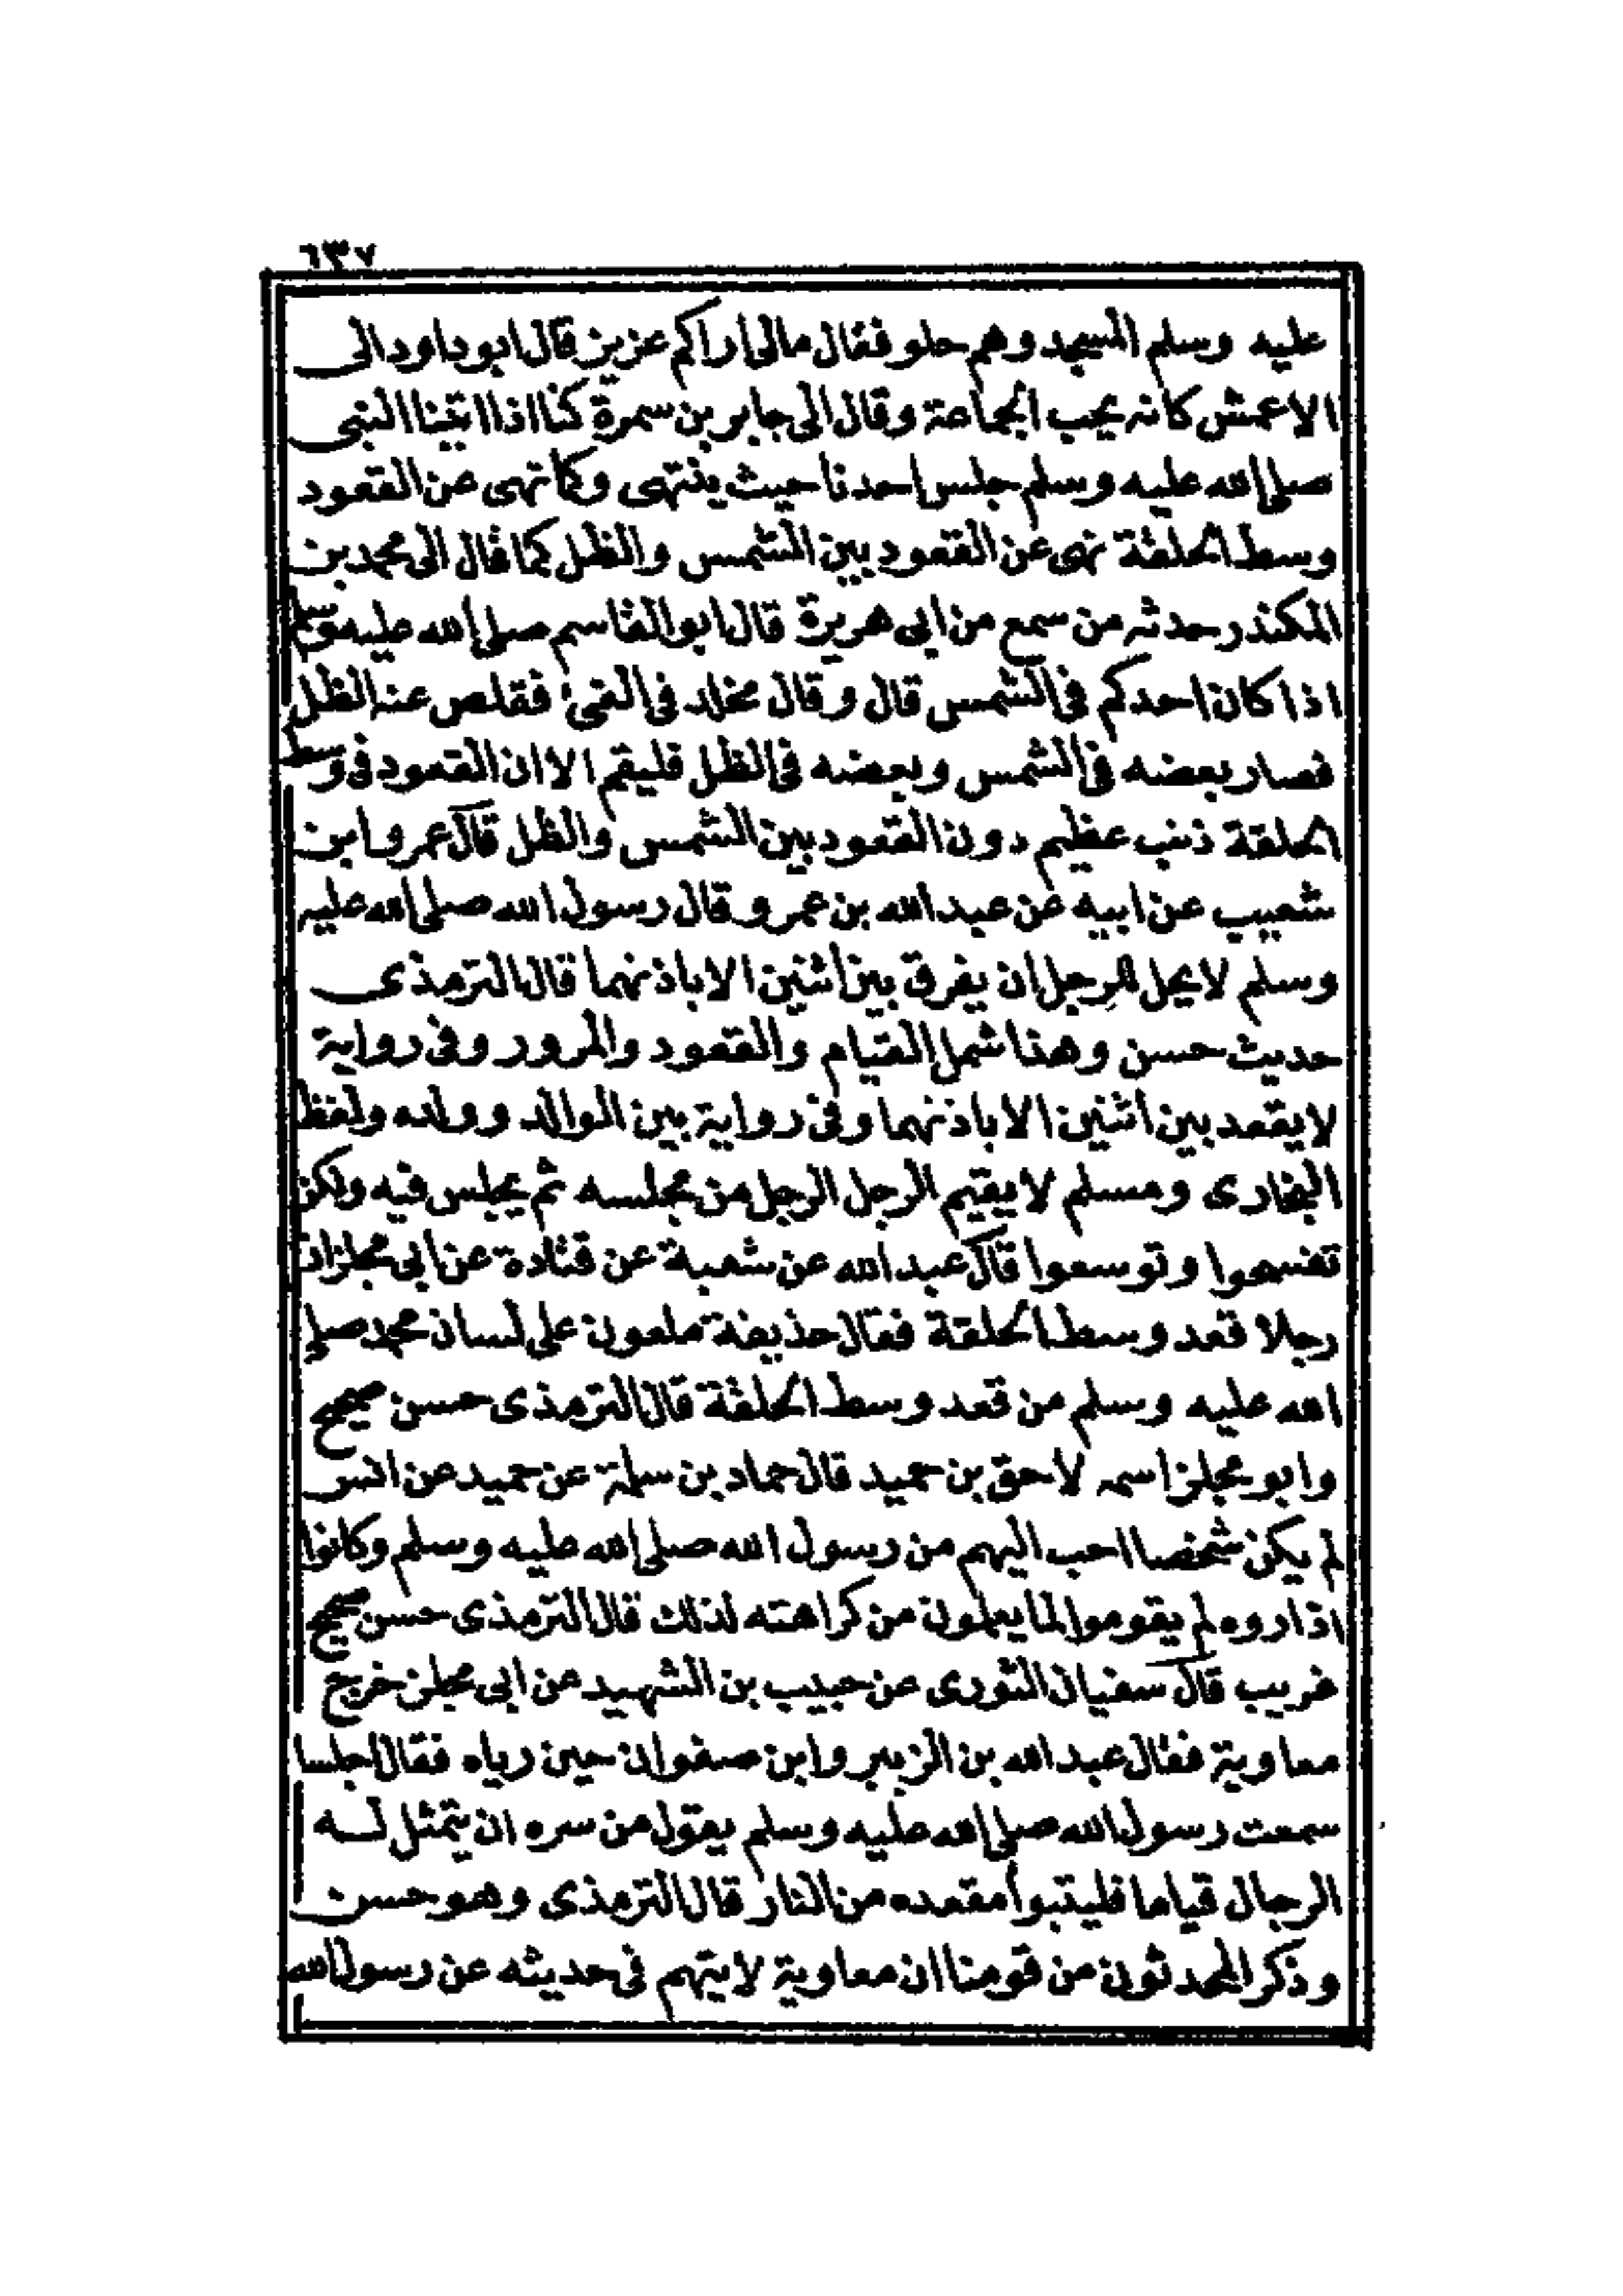 ٦٣٧
عليه وسلم المسجد وهم حلو فقال مالى اراكم عزيز قال ابو داود الى
الاعمش كانه يحب الجماعة وقال الى جابر بن سمرة كنا اذا اتينا النبى
صلى الله عليه وسلم جلس احدنا حيث ينتهى وكما نهى عن القعود
وسط الحلقة نهى عن القعود بين الشمس والظل كما قال الى محمد بن
المكندر حدثه من سمع من ابى هريرة قال ابو القاسم صلى الله عليه وسلم
اذا كان احدكم فى الشمس قال وقال مخلد فى الفىء فقلص عنه الظل
فصار بعضه فى الشمس وبعضه فى الظل فليقم الا ان القعود فى وسط
الحلقة ذنب عظيم دون القعود بين الشمس والظل قال عمرو ابن
شعيب عن ابيه عن عبد الله بن عمرو قال رسول الله صلى الله عليه
وسلم لا يحل للرجل ان يفرق بين اثنين الا باذنهما قال الترمذى
حديث حسن وهذا شمل القيام والقعود والمرور وفى رواية
لا يقعد بين اثنين الا باذنهما وفى رواية بين الوالد وولده ولفظ
البخارى ومسلم لا يقيم الرجل الرجل من مجلسه ثم يجلس فيه ولكن
تفسحوا وتوسعوا قال عبد الله عن شعبة عن قتادة عن ابى مجلز ان
رجلا قعد وسط الحلقة فقال حذيفة ملعون على لسان محمد صلى
الله عليه وسلم من قعد وسط الحلقة قال الترمذى حسن صحيح
وابو مجلز اسمه لاحق بن حميد قال حماد بن سلمة عن حميد عن انس
لم يكن شخصا احب اليهم من رسول الله صلى الله عليه وسلم وكانوا
اذا روه لم يقوموا لما يعلمون من كراهته لذلك قال الترمذى حسن صحيح
غريب قال سفيان الثورى عن حبيب بن الشهيد عن ابى مجلز خرج
معاوية فقال عبد الله بن الزبير وابن صفوان حين رياه فقال اجلسا
سمعت رسول الله صلى الله عليه وسلم يقول من سره ان يتمثل له
الرجال قياما فليتبوأ مقعده من النار قال الترمذى وهو حسن
وذكر المحدثون من قومنا ان معاوية لا يتهم فى حديثه عن رسول الله